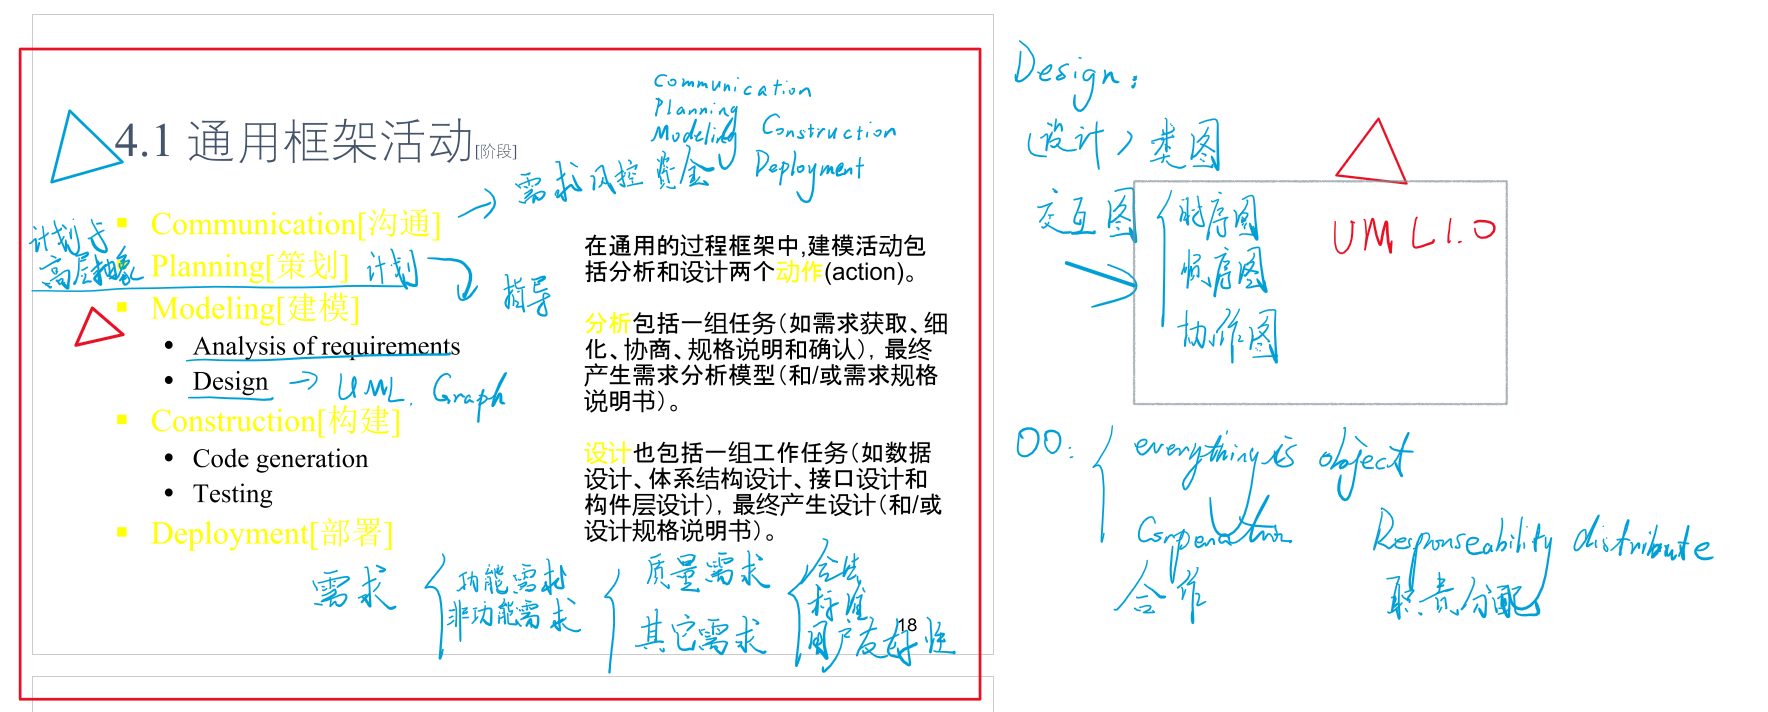 Communication
Planning
Modeling Construction
Deployment
4.1 通用框架活动[阶段]
需求 风控 资金
Communication[沟通]
计划与
高层抽象
Planning[策划] 计划
指导
Modeling[建模]
• Analysis of requirements
• Design → UML. Graph
Construction[构建]
• Code generation
• Testing
Deployment[部署]
在通用的过程框架中,建模活动包
括分析和设计两个动作(action)。
分析包括一组任务（如需求获取、细
化、协商、规格说明和确认），最终
产生需求分析模型（和/或需求规格
说明书）。
设计也包括一组工作任务（如数据
设计、体系结构设计、接口设计和
构件层设计），最终产生设计（和/或
设计规格说明书）。
需求
功能需求
非功能需求
质量需求
其它需求
合法
标准
用户友好性
18
Design:
(设计) 类图
交互图
时序图
顺序图
协作图
UML1.0
OO:
everything is object
合作
Responseability distribute
职责分配